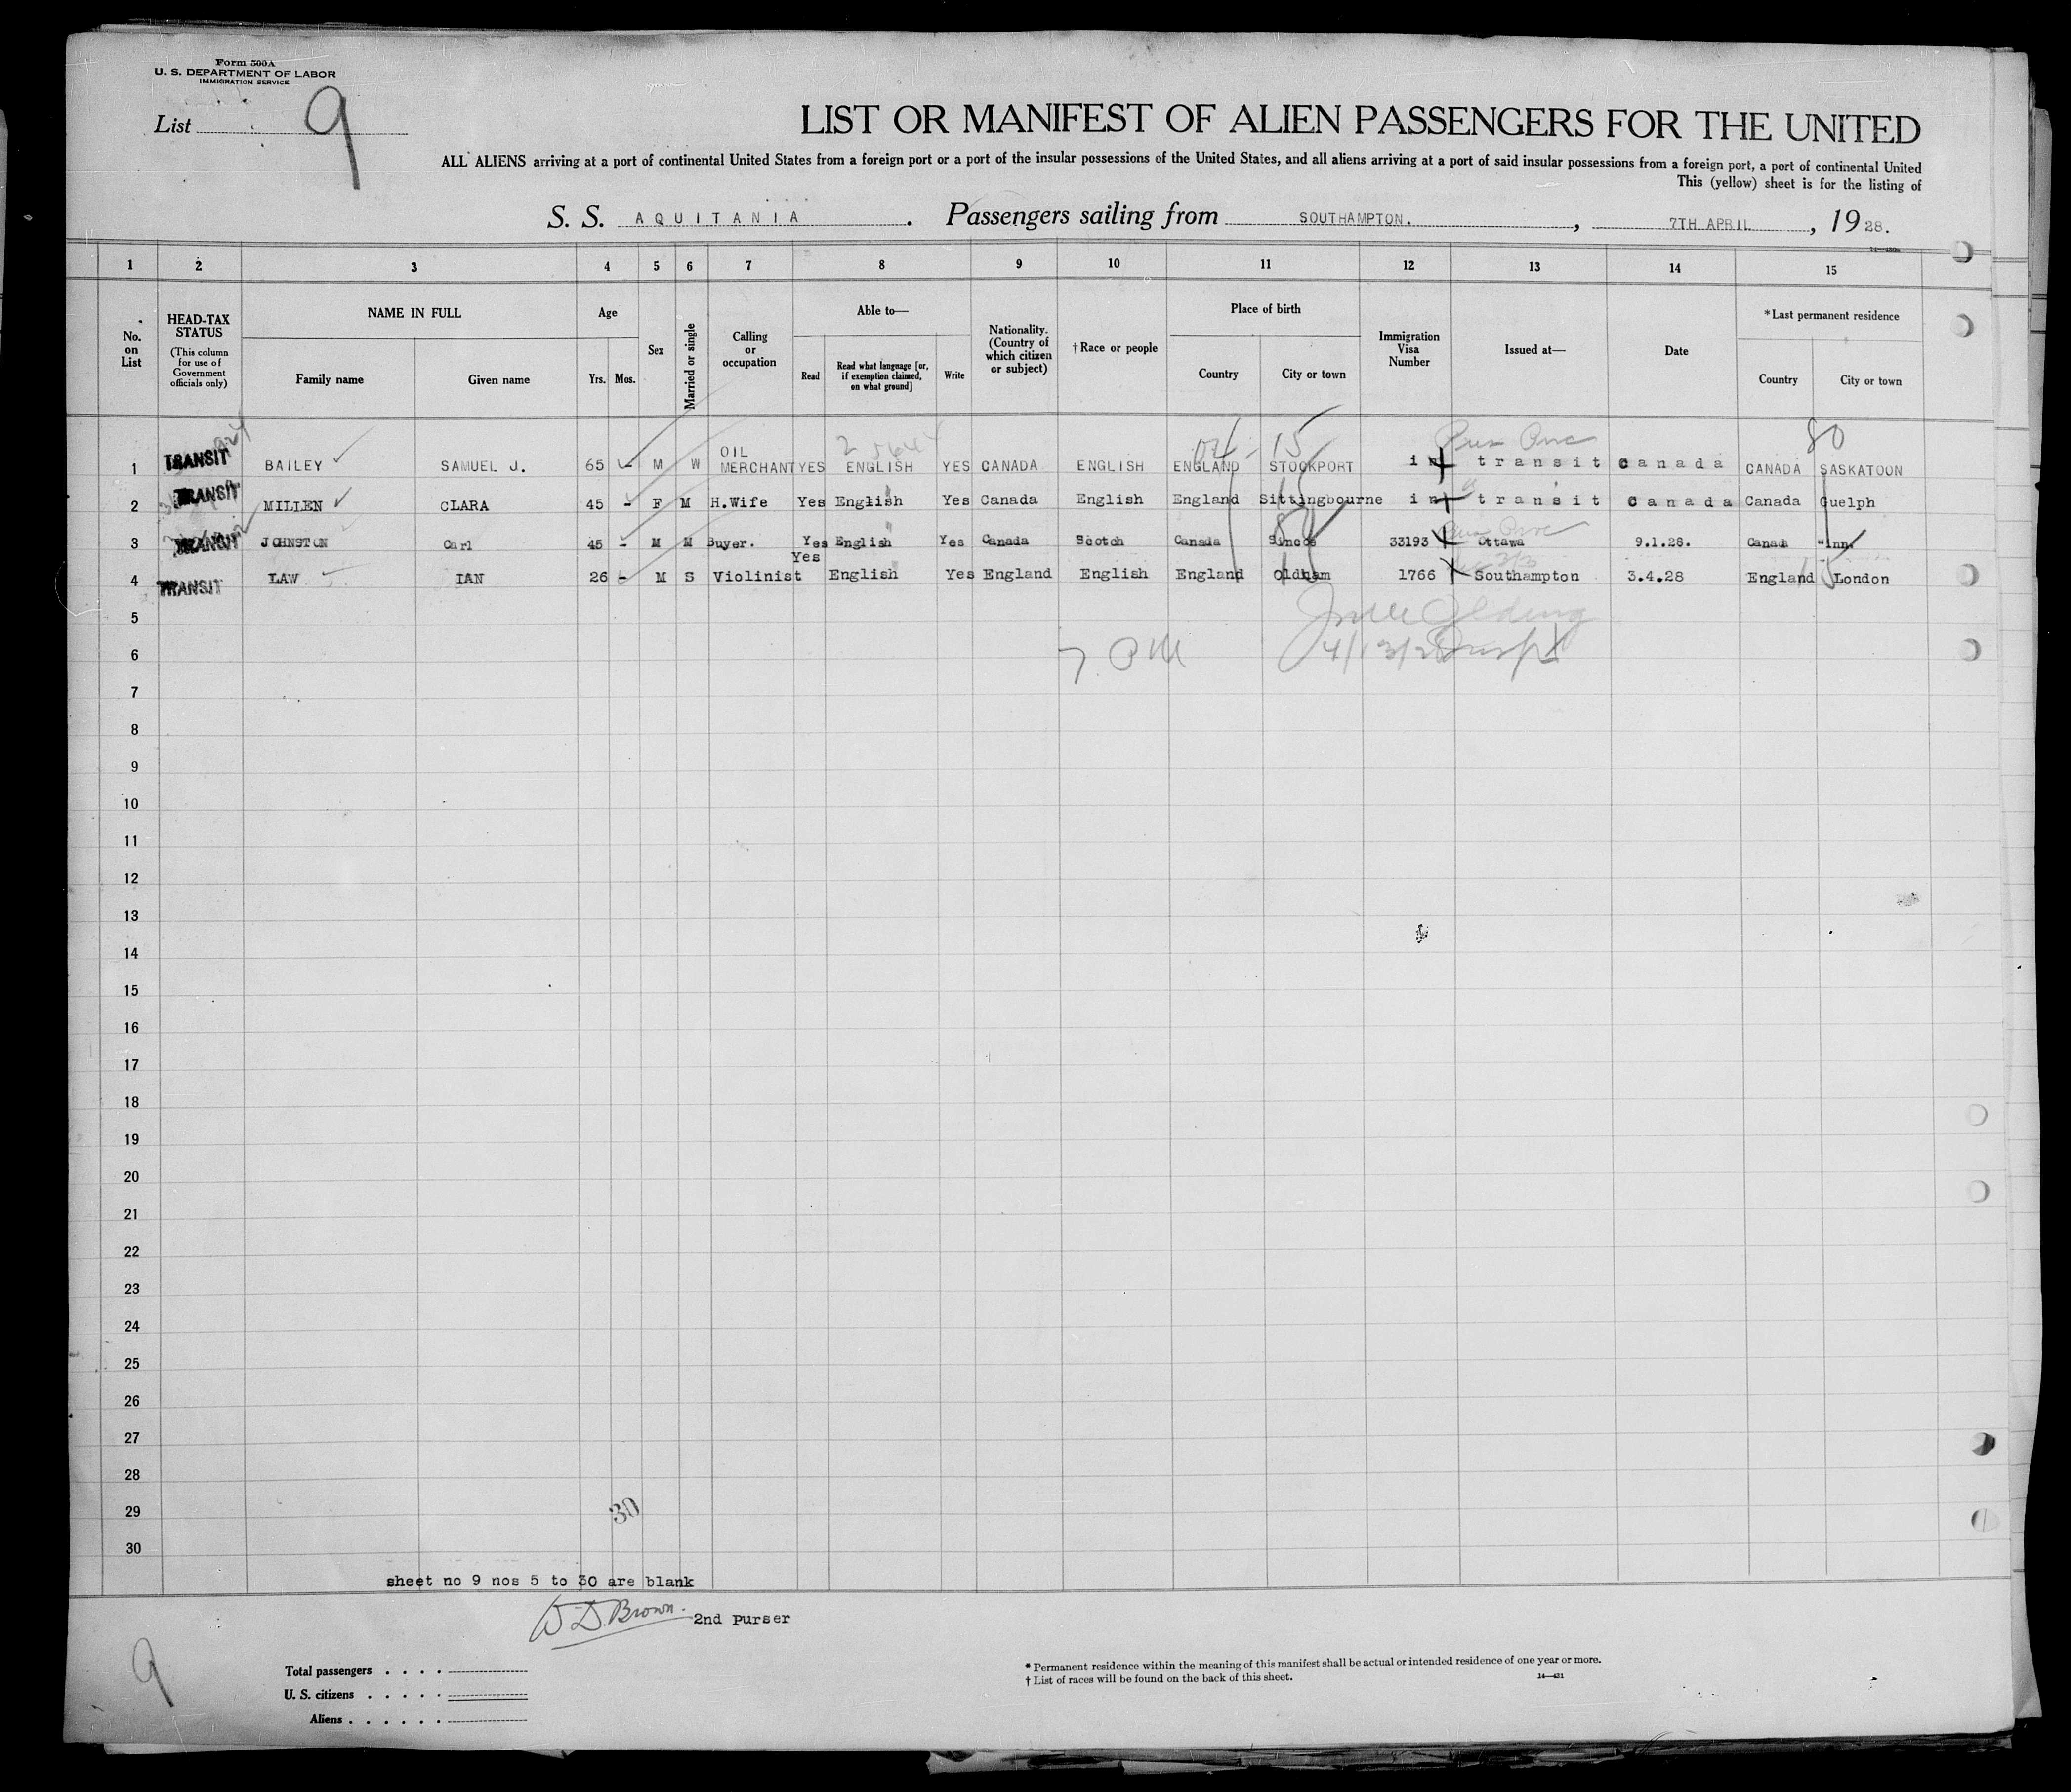 Form 500A
U. S. DEPARTMENT OF LABOR
IMMIGRATION SERVICE
List 9
LIST OR MANIFEST OF ALIEN PASSENGERS FOR THE UNITED
ALL ALIENS arriving at a port of continental United States from a foreign port or a port of the insular possessions of the United States, and all aliens arriving at a port of said insular possessions from a foreign port, a port of continental United
This (yellow) sheet is for the listing of
S. S. AQUITANIA. Passengers sailing from SOUTHAMPTON., 7TH APRIL, 1928.
1 2 3 4 5 6 7 8 9 10 11 12 13 14 15
No. on List
HEAD-TAX STATUS
(This column for use of Government officials only)
NAME IN FULL
Family name Given name
Age
Yrs. Mos.
Sex
Married or single
Calling or occupation
Able to—
Read
Read what language [or, if exemption claimed, on what ground]
Write
Nationality. (Country of which citizen or subject)
† Race or people
Place of birth
Country City or town
Immigration Visa Number
Issued at—
Date
*Last permanent residence
Country City or town
80
1 TRANSIT BAILEY SAMUEL J. 65 - M W OIL MERCHANT YES ENGLISH YES CANADA ENGLISH ENGLAND STOCKPORT in transit canada CANADA SASKATOON
2 TRANSIT MILLEN CLARA 45 - F M H.Wife Yes English Yes Canada English England Sittingbourne in transit canada Canada Guelph
3 TRANSIT JOHNSTON Carl 45 - M M Buyer. Yes English Yes Canada Scotch Canada 33193 Ottawa 9.1.28. Canada
4 TRANSIT LAW IAN 26 - M S Violinist Yes English Yes England English England Oldham 1766 Southampton 3.4.28 England London
5
6
7
8
9
10
11
12
13
14
15
16
17
18
19
20
21
22
23
24
25
26
27
28
29
30
30
sheet no 9 nos 5 to 30 are blank
W D Brown. 2nd Purser
9
Total passengers . . . .
U. S. citizens . . . . .
Aliens . . . . . .
* Permanent residence within the meaning of this manifest shall be actual or intended residence of one year or more.
† List of races will be found on the back of this sheet.